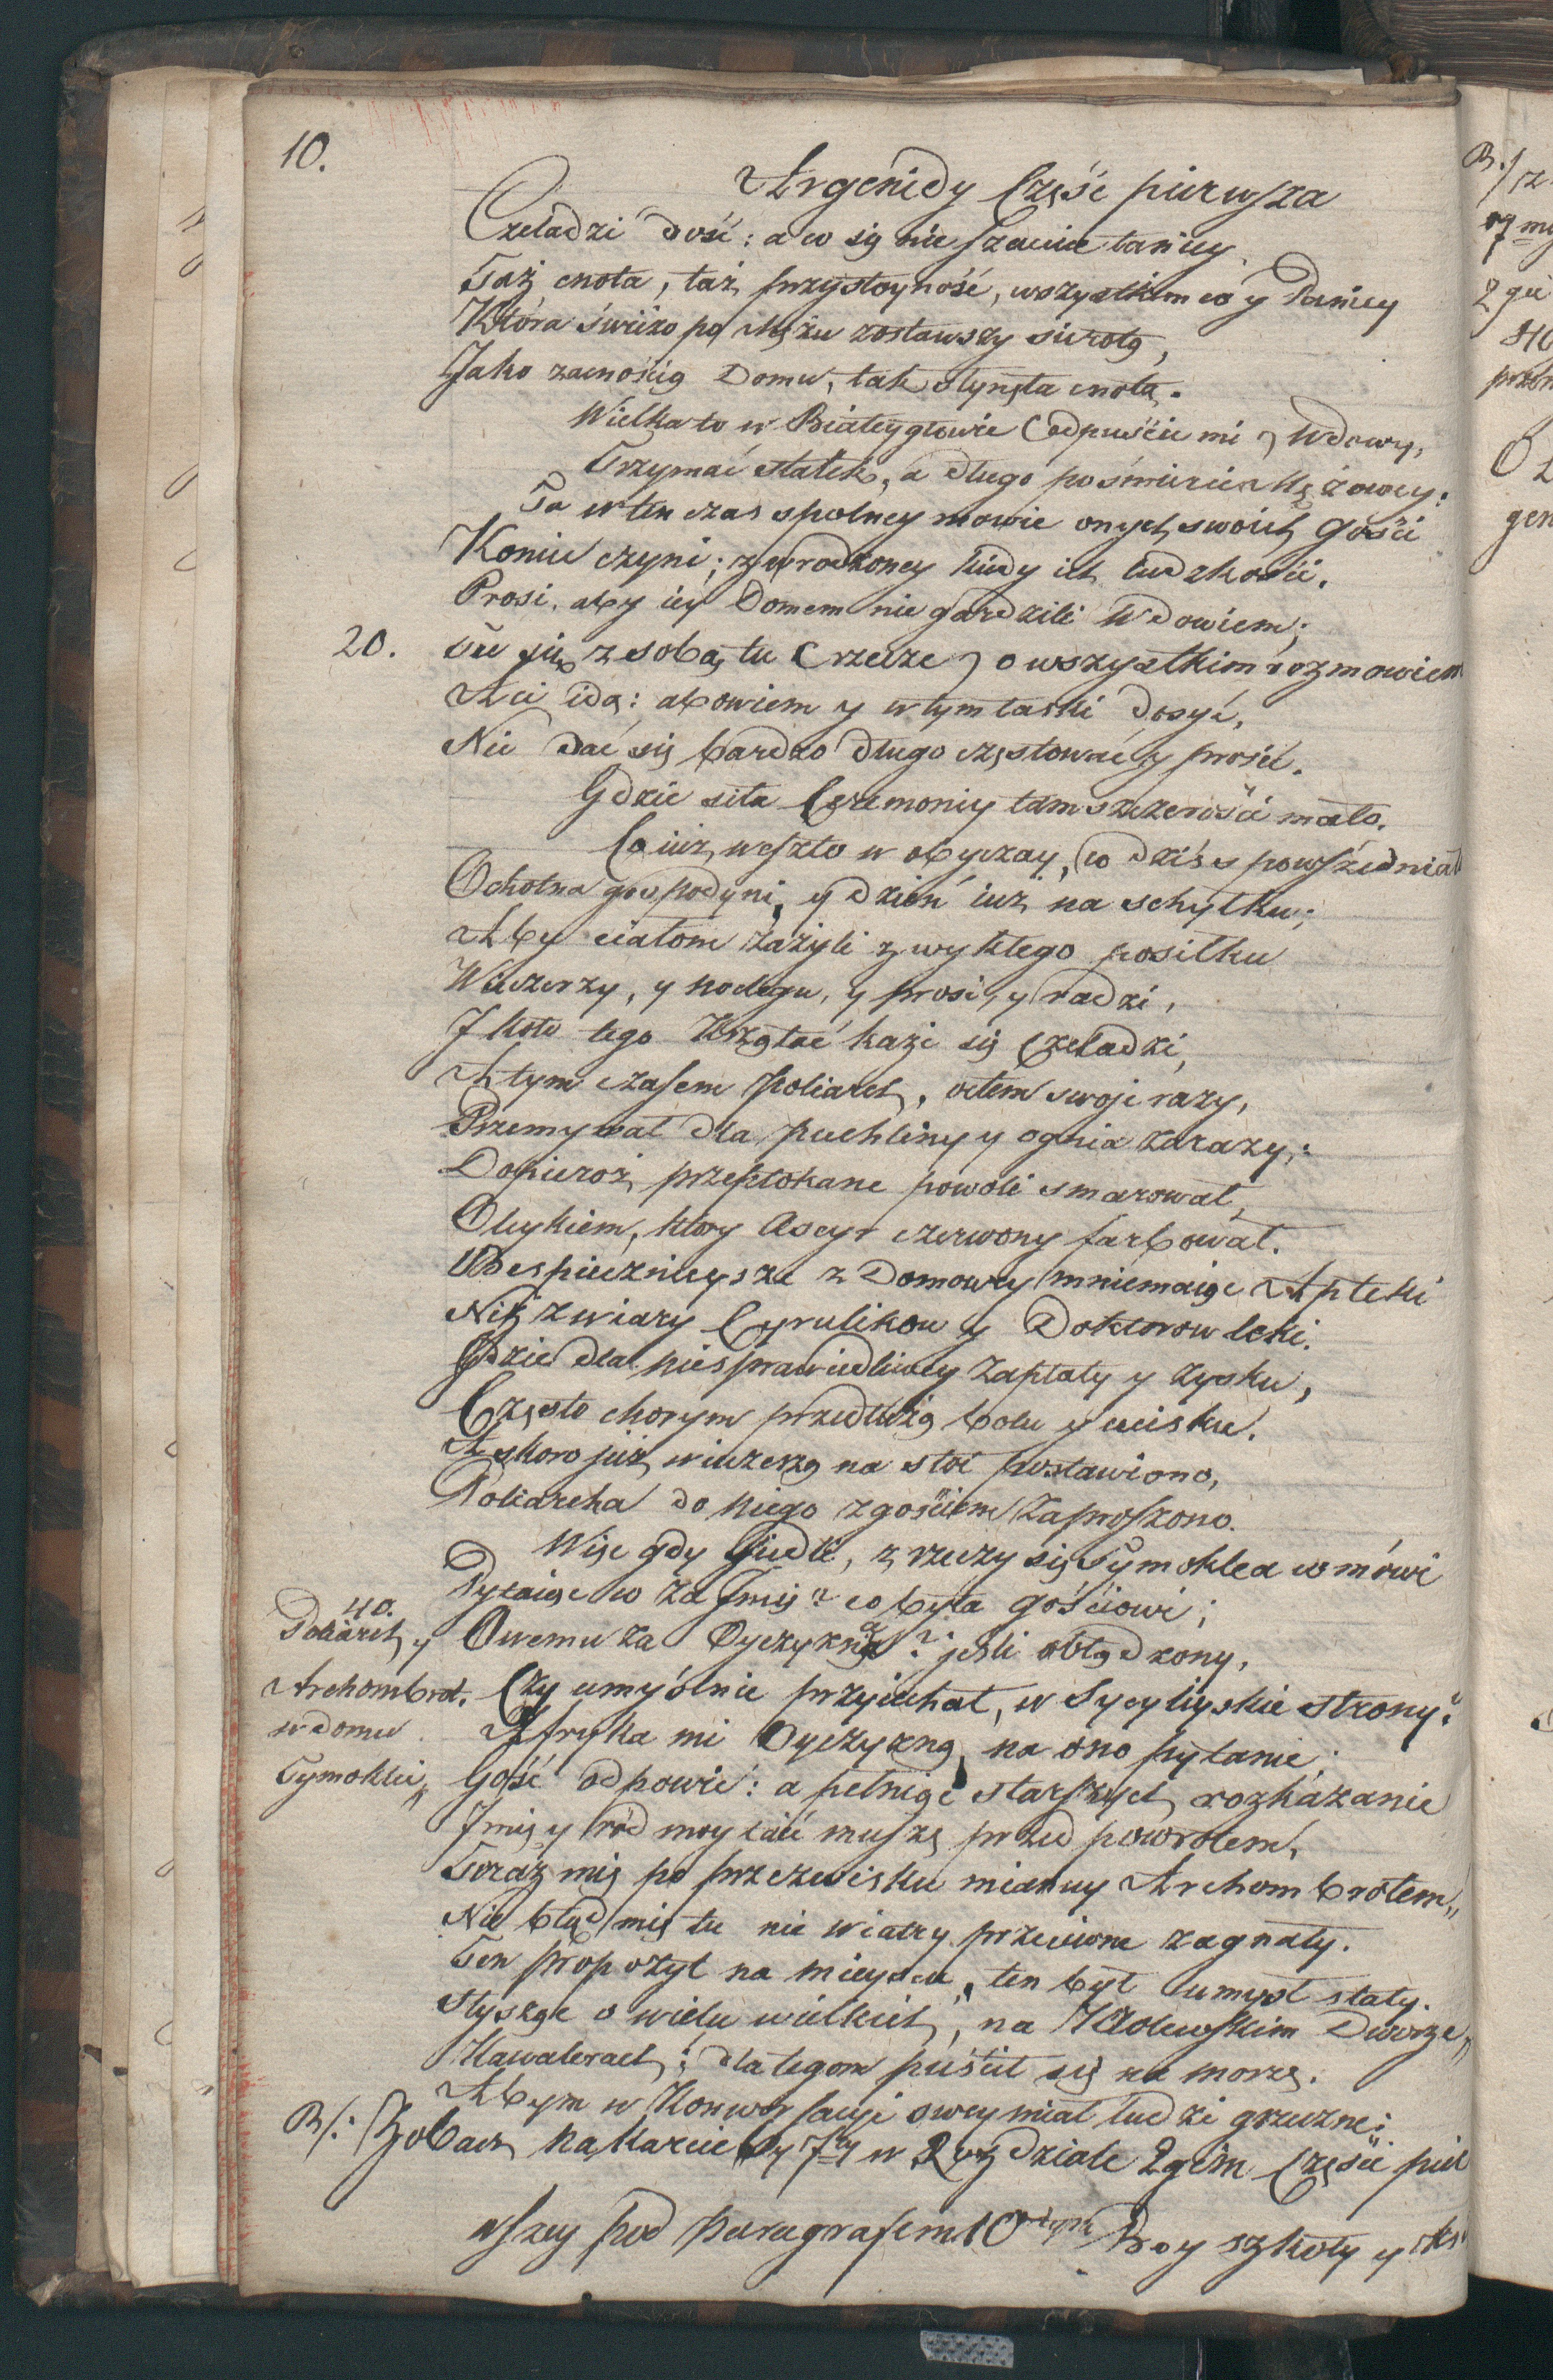 10.
Argenidy Część pierwsza
Czeladzi dość: a co się nie szacuie taniey.
Taż cnota, taż przystoyność, wszystkim co y Paniey
Która świżo po Mężu zostawszy sierotą,
Jako zacnością Domu, tak słynęła cnotą.
Wielka to w Białeygłowie (odpuście mi) Wdowy,
Trzymać statek, a długo po śmierci Mężowey.
Ta w ten czas spolney mowie onych swoich Gości
Koniec czyni; z wrodzoney kiedy ich ludzkości.
Prosi, aby iey Domem nie gardzili Wdowiem;
20.
Tu się z sobą tu (rzecze) o wszystkim rozmowiem
Aci idą: abowiem y w tym łaski dosyć,
Nie dać się bardzo długo częstować y prosić.
Gdzie siła Ceremoniy tam szczerości mało.
Co iuż weszło w obyczay, co dziś spowszedniało
Ochotna gospodyni, y dzień iuż na schyłku;
Aby ciałom zażyli zwykłego posiłku
Wieczerzy, y noclegu, y prosi, y radzi,
I koło tego krzątać każe się Czeladzi,
A tym czasem Poliarch, octem swoje razy,
Przemywał dla puchliny y ognia zarazy;
Dopieroż przepłokane powoli smarował,
Oleykiem, ktory Ascyr czerwony farbował.
Ubespiecznieysze z Domowey mniemaiąc Apteki
Niż zwiary Cyrulikow y Doktorow leki.
Gdzie dla niesprawiedliwey zapłaty y zysku,
Często chorym przedłużą bolu y ucisku.
A skoro już wieczerzą na stoł postawiono,
Poliarcha do niego z gościem zaproszono.
Więc gdy Jiedli, z rzeczy się Tymoklea wmówi
Pytaiąc co za Jmię? co była gościowi;
40.
Poliarch y
Archombrot.
w domu
Tymoklei„
Owemu za Oyczyzna? jeśli obłądzony,
Czy umyślnie przyiechał, w Sycyliyskie strony?
Afryka mi Oyczyzną, na ono pytanie;
Gość odpowie: a pełniąc starszych rozkazanie
Jmię y ród moy taić muszę przed powrotem,
Teraz mię po przezwisku mianuy Archombrotem„
Nie błąd mię tu nie wiatry przeciwne zagnały.
Ten propozyt na mieyscu, ten był umysł stały.
Słysząc o wielu wielkich, na Krolewskim Dworze„
Kawalerach; dla tegom puścił się na morze.
Abym w Konwersacyi owey miał ludzi grzeczne:
Zobacz na karcie 7 w Rozdziale 2gim Części pier
wszey pod paragrafem 10 szkoły y